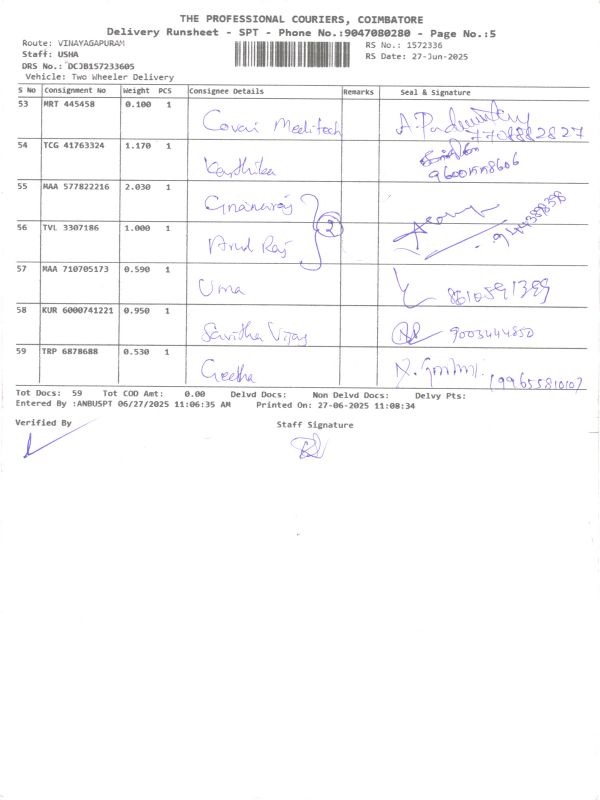 THE PROFESSIONAL COURIERS, COIMBATORE
Delivery Runsheet - SPT - Phone No.:9047080280 - Page No.:5
Route: VINAYAGAPURAM
RS No.: 1572336
Staff: USHA
RS Date: 27-Jun-2025
DRS No.: DCJB157233605
Vehicle: Two Wheeler Delivery
S No Consignment No Weight PCS Consignee Details Remarks Seal & Signature
53 MRT 445458 0.100 1 Covai Meditech 7708882827
54 TCG 41763324 1.170 1 Kaythika
55 MAA 577822216 2.030 1 Gnanaraj
56 TVL 3307186 1.000 1 Arul Raj 2
57 MAA 710705173 0.590 1 Uma 8610591389
58 KUR 6000741221 0.950 1 Savitha Vijay 9003444850
59 TRP 6878688 0.530 1 Geetha
Tot Docs: 59 Tot COD Amt: 0.00 Delvd Docs: Non Delvd Docs: Delvy Pts:
Entered By :ANBUSPT 06/27/2025 11:06:35 AM Printed On: 27-06-2025 11:08:34
Verified By Staff Signature